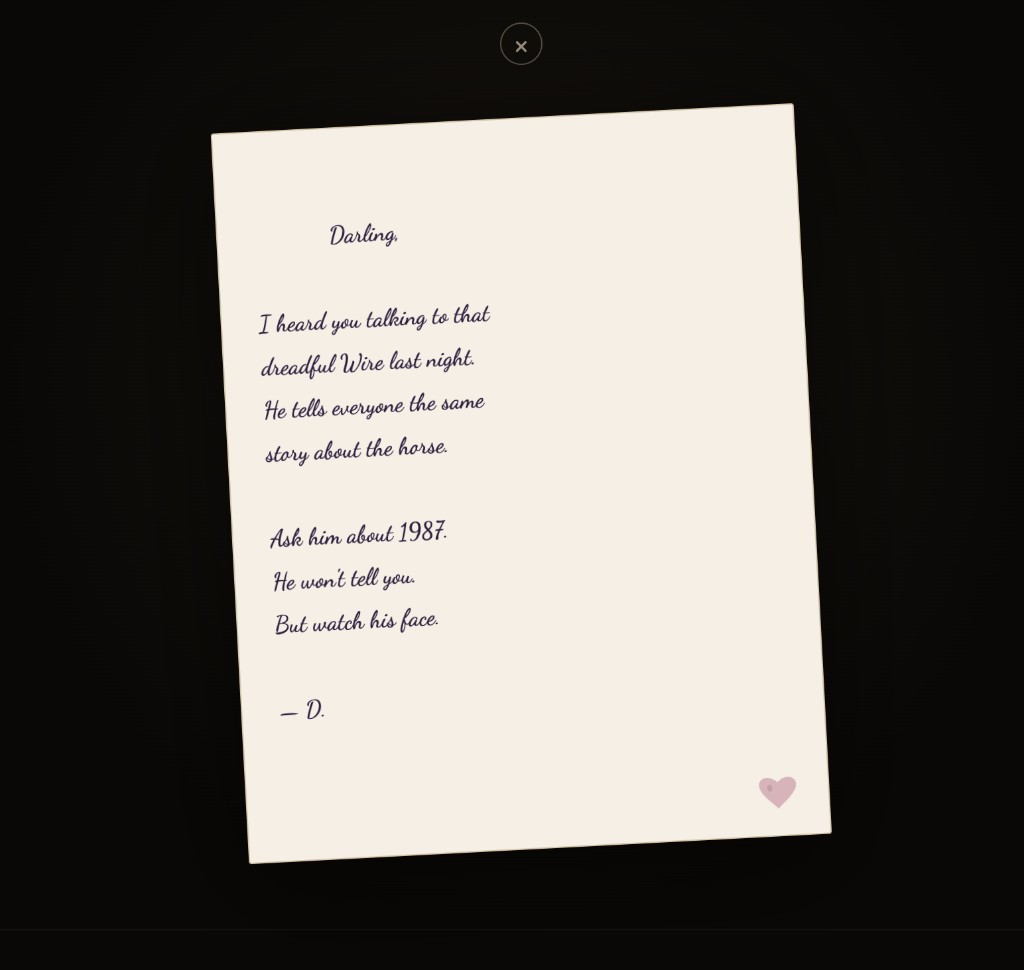 Darling,
I heard you talking to that
dreadful Wire last night.
He tells everyone the same
story about the horse.
Ask him about 1987.
He won't tell you.
But watch his face.
— D.